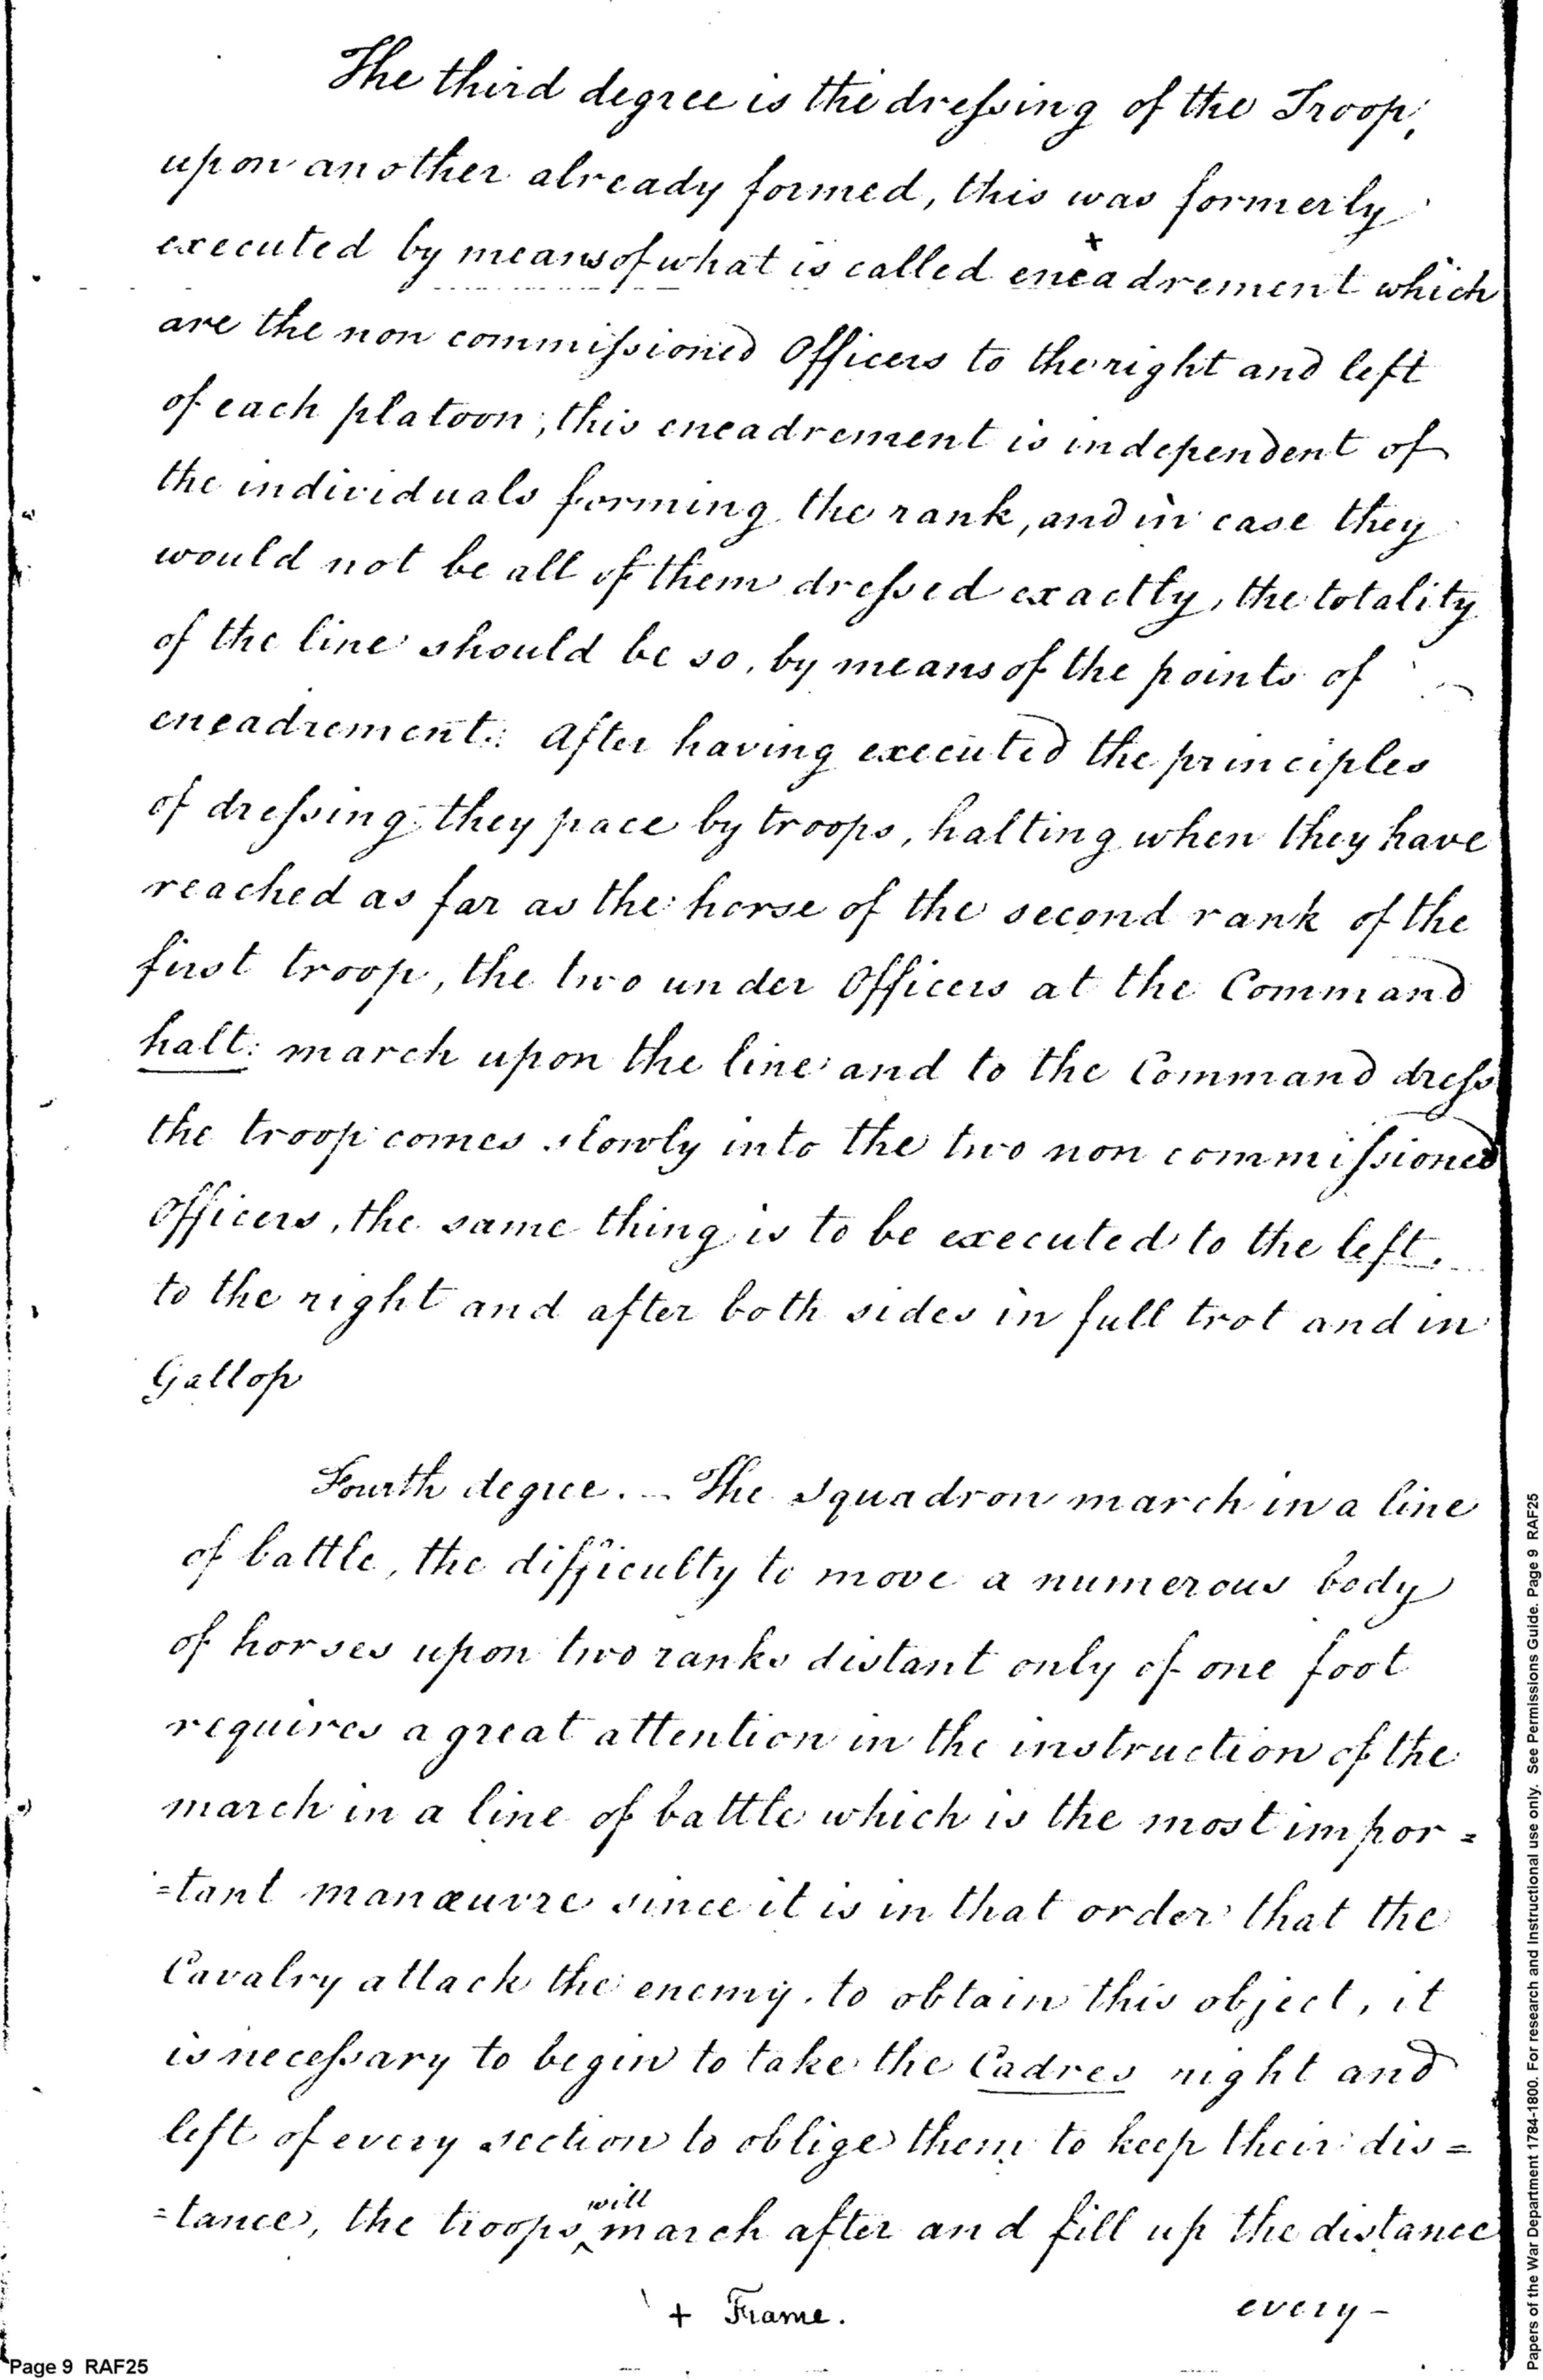 The third degree is the dressing of the Troop,
upon another already formed, this was formerly
+
executed by means of what is called encadrement which
are the non commissioned Officers to the right and left
of each platoon; this encadrement is independent of
the individuals forming the rank, and in case they
would not be all of them dressed exactly, the totality
of the line should be so, by means of the points of
encadrement. After having executed the principles
of dressing they pace by troops, halting when they have
reached as far as the horse of the second rank of the
first troop, the two under Officers at the Command
halt: march upon the line and to the Command dress
the troop comes slowly into the two non commissioned
Officers, the same thing is to be executed to the left,
to the right and after both sides in full trot and in
Gallop
Fourth degree. - The Squadron march in a line
of battle, the difficulty to move a numerous body
of horses upon two ranks distant only of one foot
requires a great attention in the instruction of the
march in a line of battle which is the most impor=
=tant manœuvre since it is in that order that the
Cavalry attack the enemy. to obtain this object, it
is necessary to begin to take the Cadres right and
left of every section to oblige them to keep their dis=
=tance, the troops will march after and fill up the distance
+ Frame.
every-
Page 9 RAF25
Papers of the War Department 1784-1800. For research and Instructional use only. See Permissions Guide. Page 9 RAF25